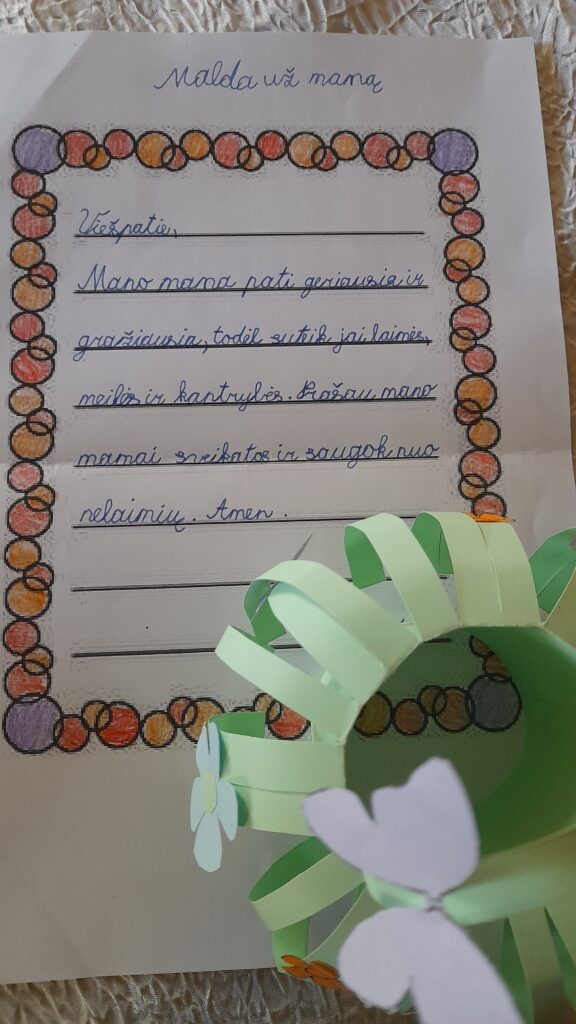 Malda už mamą
Viešpatie,
Mano mama pati geriausia ir
gražiausia, todėl suteik jai laimės,
meilės ir kantrybės. Prašau, mano
mamai sveikatos ir saugok nuo
nelaimių. Amen.